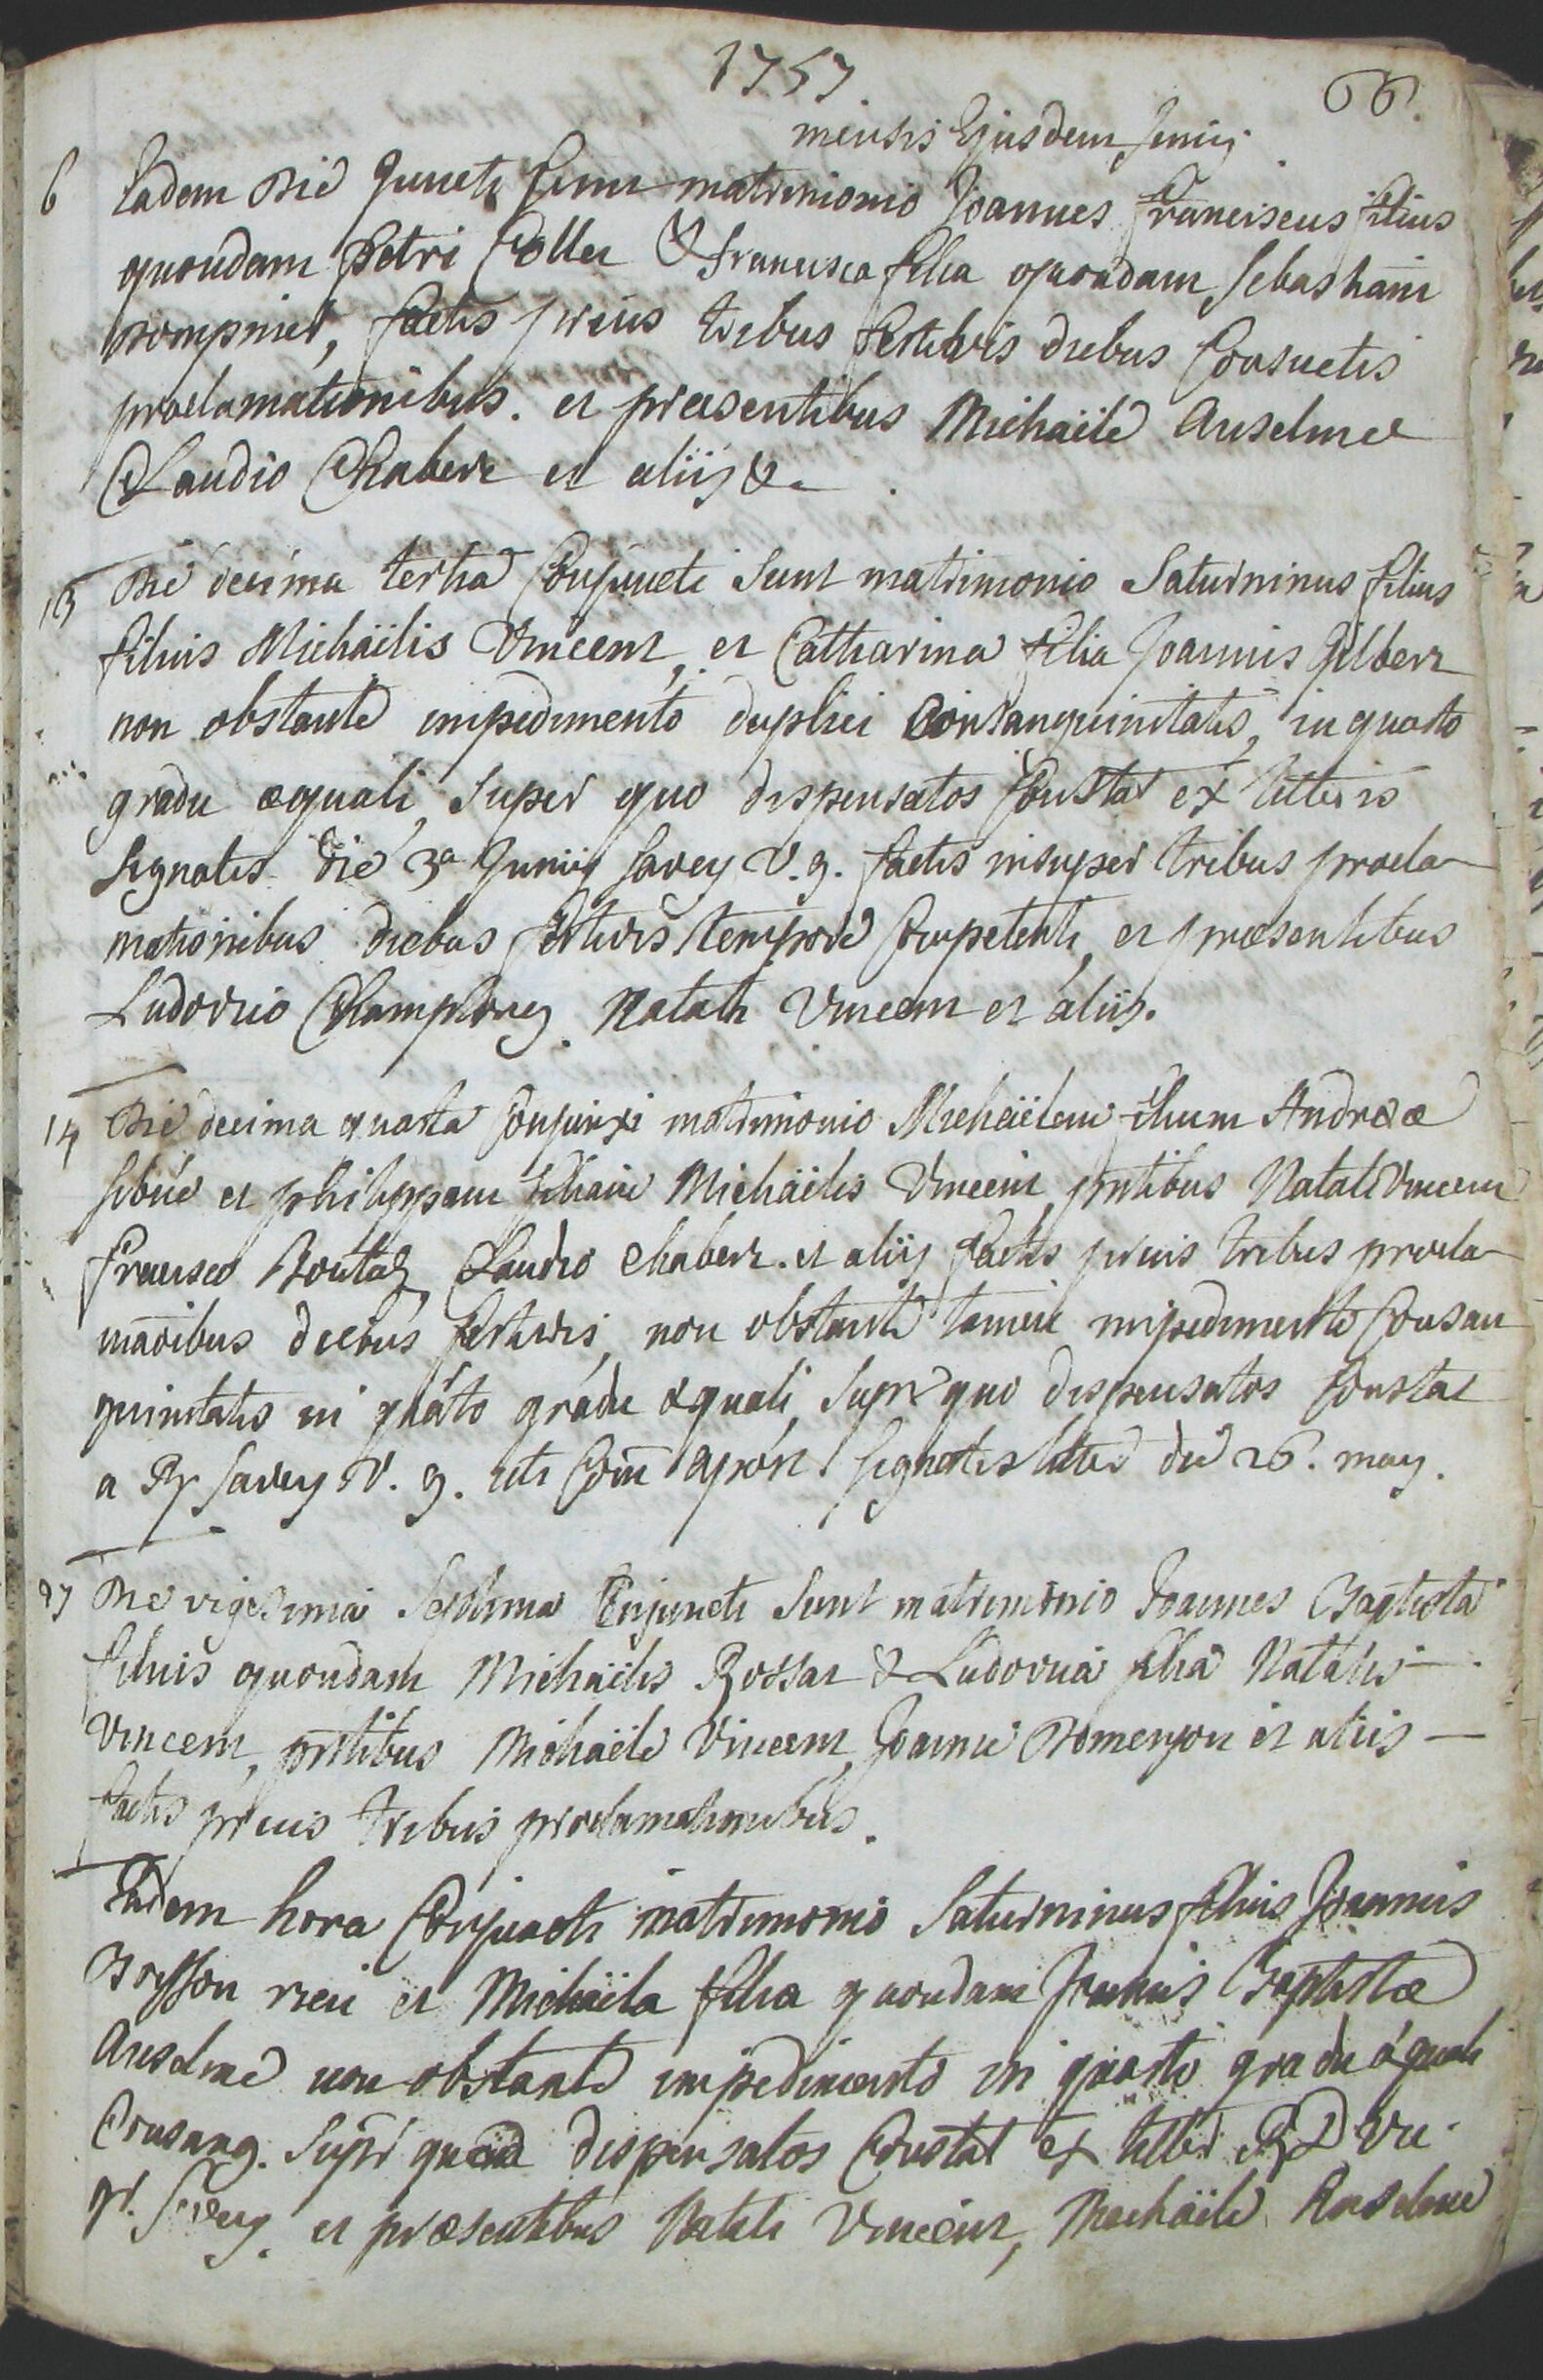 1757
66.
mensis Ejusdem Junii
6 Eadem die Juncti sunt matrimonio Joannes franciscus filius
quondam Petri Collet & francisca filia quondam Sebastiani
Dompmet, factis prius tribus festivis diebus Consuetis
proclamationibus. et praesentibus Michaële Anselme
Claudio Chabert et aliis &a
13 Die decima tertia Conjuncti Sunt matrimonio Saturninus filius
filius Michaëlis Vincent, et Catharina filia Joannis Gilbert
non obstante impedimento duplici Consanguinitatis, in quarto
gradu æquali, Super quo dispensatos Constat ex litteris
Signatis die 3a Junii Savey V. g. factis insuper tribus procla-
mationibus diebus festivis tempore Competenti, et praesentibus
Ludovico Champlong Natali Vincent et aliis.
14 Die decima quarta Conjunxi matrimonio Michaëlem filium Andreæ
Sibué et philippam filiam Michaëlis Vincent, pntibus Natali Vincent
francisco Boutaz, Claudio Chabert. et aliis factis prius tribus procla-
maõibus diebus festivis, non obstante tamen impedimento Consan
guinitatis in quarto gradu æquali, Supr quo dispensatos Constat
a Rd Savey V. g. uti Com̃ apõn. Signatis litter die 26. may.
27 Die vigesima Septima Conjuncti Sunt matrimonio Joannes Baptista
filius quondam Michaëlis Rossat & Ludovica filia Natalis -
Vincent, pntibus Michaële Vincent, Joanne Domenjon et aliis -
factis prius tribus proclamationibus.
Eadem hora Conjuncti matrimonio Saturninus filius Joannis
Bosson rieu et Michaëla filia quondam Joannis Baptistæ
Anselme non obstante impedimento in quarto gradu æquali
Consang. Supr quo dispensatos Constat ex litter RD Vic.
gl. Savey. et præsentibus Natali Vincent, Michaële Anselme